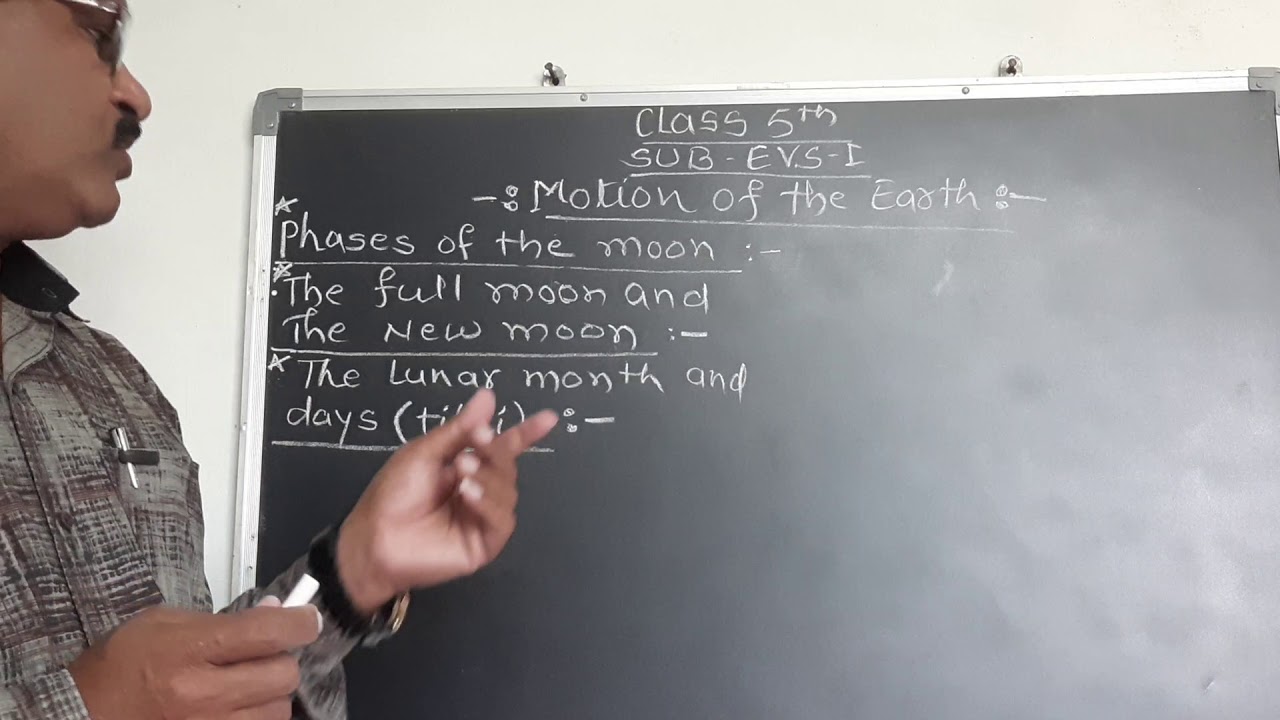 CLASS 5th
SUB-EVS-I
-: Motion of the Earth :-
* Phases of the moon :-
* The full moon and
The New moon :-
* The Lunar month and
days ( :-